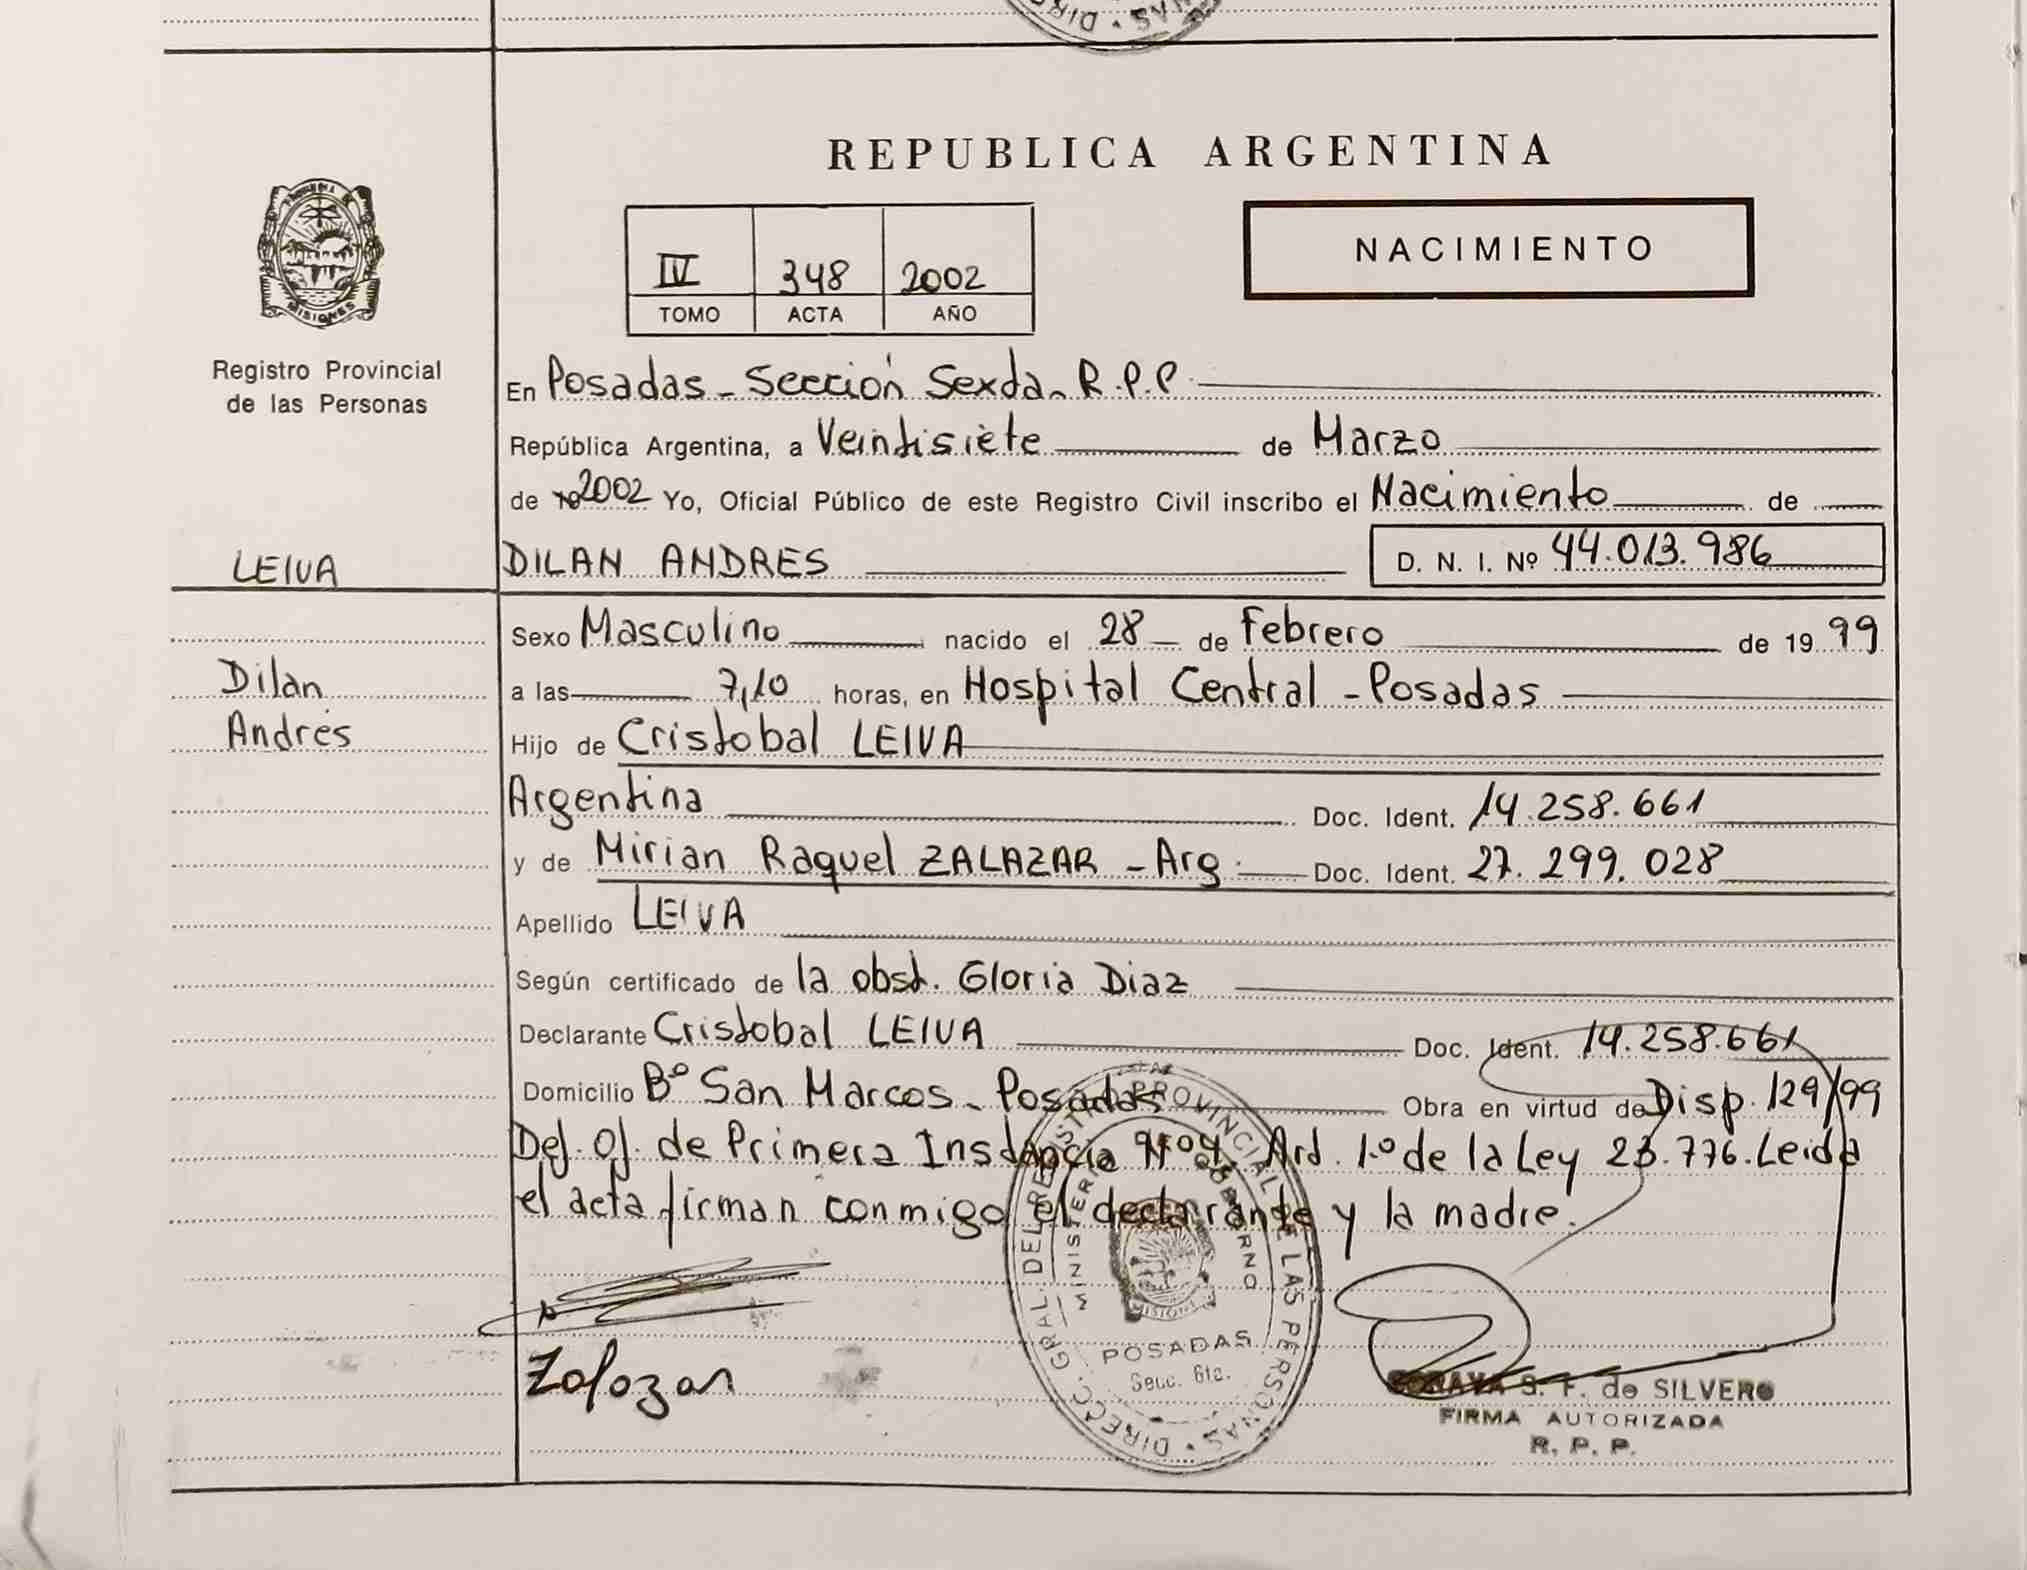 REPUBLICA ARGENTINA
MISIONES
Registro Provincial
de las Personas
IV 348 2002
TOMO ACTA AÑO
NACIMIENTO
En Posadas - Sección Sexta - R.P.P.
República Argentina, a Veintisiete de Marzo
de 19 2002 Yo, Oficial Público de este Registro Civil inscribo el Nacimiento de
LEIVA
DILAN ANDRES D. N. I. Nº 44.013.986
Sexo Masculino nacido el 28 de Febrero de 19 99
Dilan
Andrés
a las 7,10 horas, en Hospital Central - Posadas
Hijo de Cristobal LEIVA
Argentina Doc. Ident. 14.258.661
y de Mirian Raquel ZALAZAR - Arg. Doc. Ident. 27.299.028
Apellido LEIVA
Según certificado de la obst. Gloria Diaz
Declarante Cristobal LEIVA Doc. Ident. 14.258.661
Domicilio Bº San Marcos - Posadas Obra en virtud de Disp. 129/99
Def. Of. de Primera Instancia Nº 04. Art. 1º de la Ley 23.776. Leida
el acta firman conmigo el declarante y la madre.
Zalazar
DIRECC. GRAL. DEL REGISTRO PROVINCIAL DE LAS PERSONAS
MINISTERIO DE GOBIERNO
MISIONES
POSADAS
Secc. 6ta.
SORAYA S. F. de SILVERO
FIRMA AUTORIZADA
R. P. P.